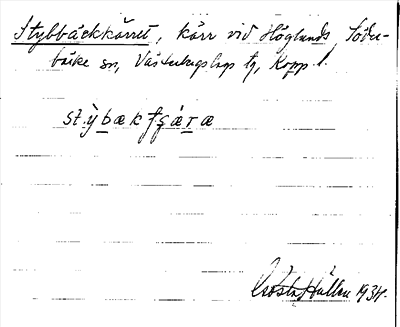 Stybbäckkärret, kärr vid Höglunds, Söder-
bärke sn, Västerbergslags tg, Kopp. l.
stỳbækʃɕæ̀ræ
Gösta Hallén 1934.